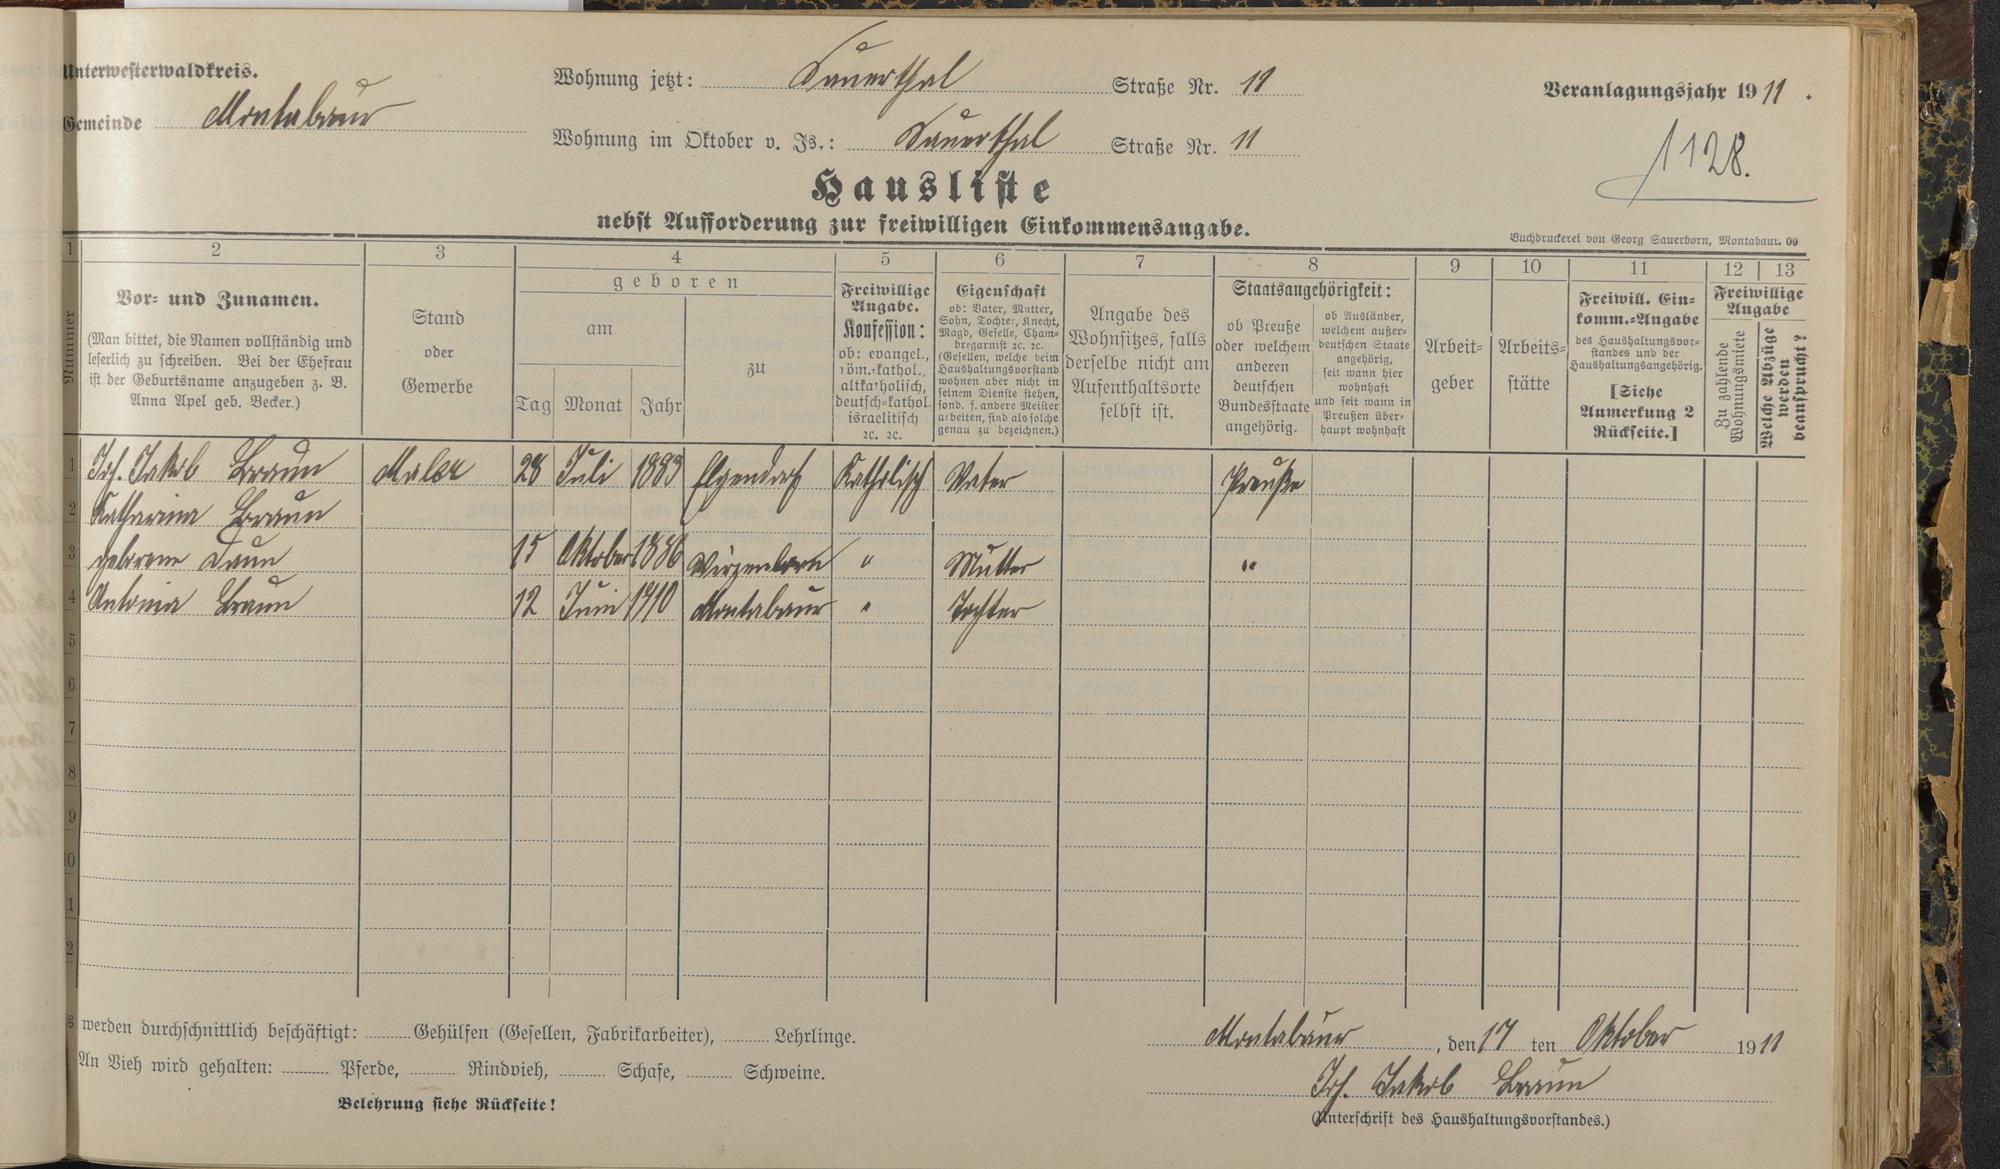 Unterwesterwaldkreis.
Gemeinde Montabaur
Wohnung jetzt: Sauerthal Straße Nr. 11
Wohnung im Oktober v. Js.: Sauerthal Straße Nr. 11
Veranlagungsjahr 1911.
1128.
Hausliste
nebst Aufforderung zur freiwilligen Einkommensangabe.
Buchdruckerei von Georg Sauerborn, Montabaur. 09
1 2 3 4 5 6 7 8 9 10 11 12 13
Nummer
Vor- und Zunamen.
(Man bittet, die Namen vollständig und
leserlich zu schreiben. Bei der Ehefrau
ist der Geburtsname anzugeben z. B.
Anna Apel geb. Becker.)
Stand
oder
Gewerbe
geboren
am
Tag Monat Jahr
zu
Freiwillige
Angabe.
Konfession:
ob: evangel.,
röm.-kathol.,
altkatholisch,
deutsch-kathol.
israelitisch
ꝛc. ꝛc.
Eigenschaft
ob: Vater, Mutter,
Sohn, Tochter, Knecht,
Magd, Geselle, Cham-
bregarnist ꝛc. ꝛc.
(Gesellen, welche beim
Haushaltungsvorstand
wohnen aber nicht in
seinem Dienste stehen,
sond. f. andere Meister
arbeiten, sind als solche
genau zu bezeichnen.)
Angabe des
Wohnsitzes, falls
derselbe nicht am
Aufenthaltsorte
selbst ist.
Staatsangehörigkeit:
ob Preuße
oder welchem
anderen
deutschen
Bundesstaate
angehörig.
ob Ausländer,
welchem außer-
deutschen Staate
angehörig,
seit wann hier
wohnhaft
und seit wann in
Preußen über-
haupt wohnhaft
Arbeit-
geber
Arbeits-
stätte
Freiwill. Ein-
komm.-Angabe
des Haushaltungsvor-
standes und der
Haushaltungsangehörig.
[Siehe
Anmerkung 2
Rückseite.]
Freiwillige
Angabe
Zu zahlende
Wohnungsmiete
Welche Abzüge
werden
beansprucht?
1 Joh. Jakob Braun Maler 28 Juli 1883 Elgendorf Katholisch Vater Preuße
2 Katharina Braun
3 geborene Daun 15 Oktober 1886 Wirzenborn " Mutter "
4 Antonia Braun 12 Juni 1910 Montabaur " Tochter
5
6
7
8
9
10
1
2
werden durchschnittlich beschäftigt: Gehülfen (Gesellen, Fabrikarbeiter), Lehrlinge.
An Vieh wird gehalten: Pferde, Rindvieh, Schafe, Schweine.
Belehrung siehe Rückseite!
Montabaur, den 17 ten Oktober 1911
Joh. Jakob Braun
(Unterschrift des Haushaltungsvorstandes.)